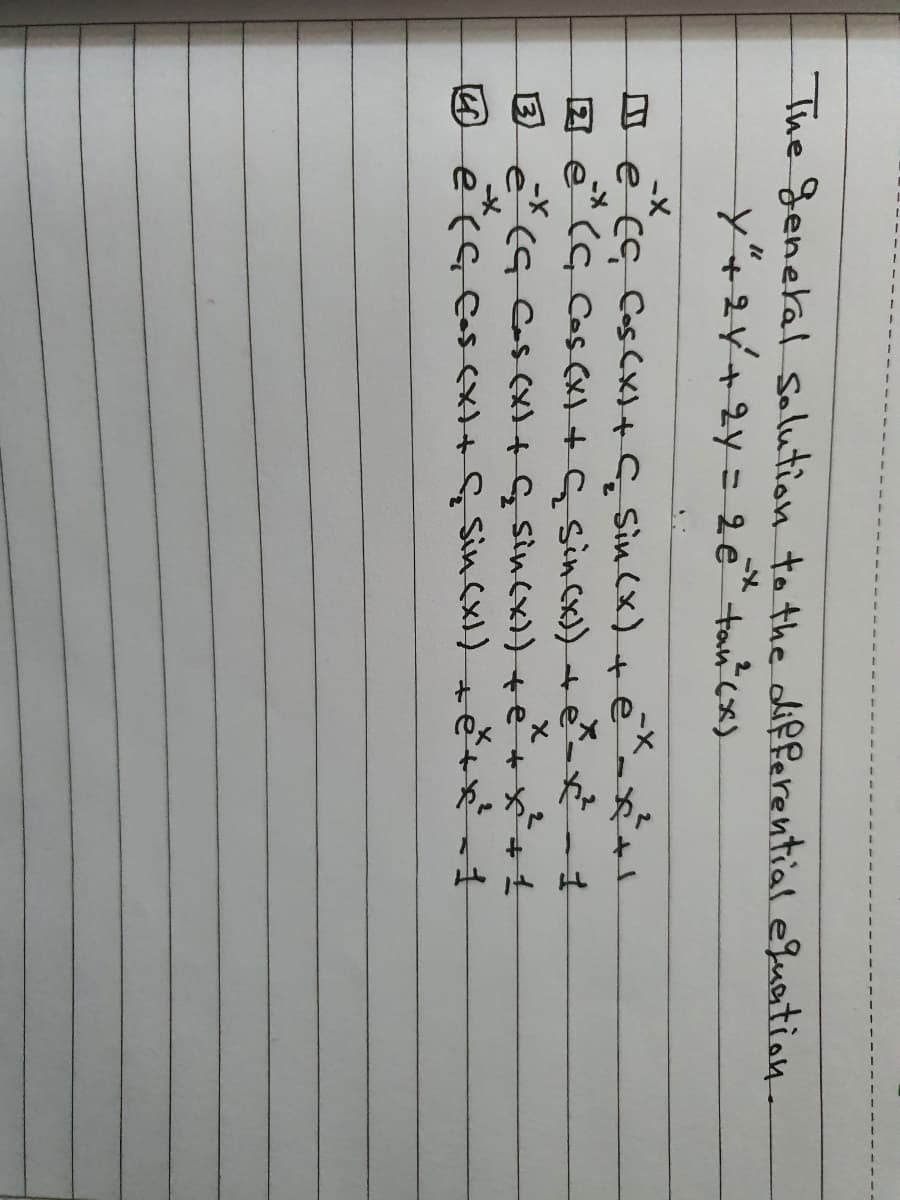 The general solution to the differential equation.
y" + 2y' + 2y = 2e^-x tan²(x)
1 e^-x (C₁ Cos(x) + C₂ Sin(x) + e^-x - x² + 1
2 e^-x (C₁ Cos(x) + C₂ Sin(x)) + e^x - x² - 1
3 e^-x (C₁ Cos(x) + C₂ Sin(x)) + e^x + x² + 1
4 e^-x (C₁ Cos(x) + C₂ Sin(x)) + e^x + x² - 1